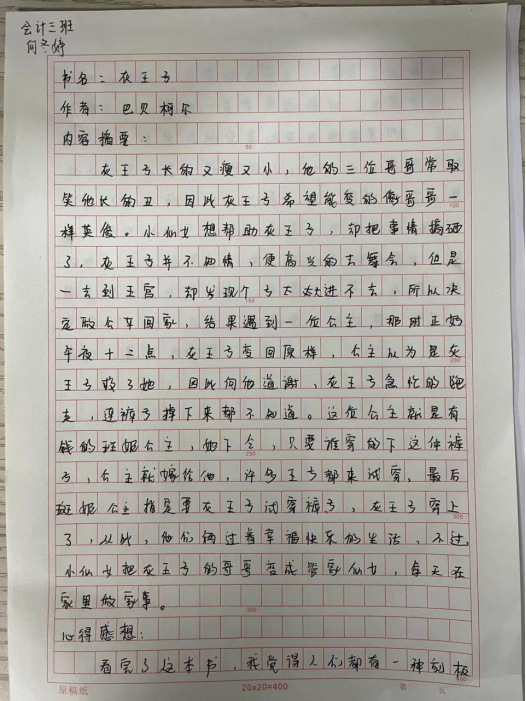 会计三班
何冬婷
书名：灰王子
作者：巴贝柯尔
内容摘要：
50
灰王子长的又瘦又小，他的三位哥哥常取
笑他长的丑，因此灰王子希望能变的像哥哥一
100
样英俊。小仙女想帮助灰王子，却把事情搞砸
了，灰王子并不知情，便高兴的去舞会，但是
一去到王宫，却发现个子太大进不去，所以决
150
定改公车回家，结果遇到一位公主，那时正好
午夜十二点，灰王子变回原样，公主以为是灰
200
王子救了她，因此向他道谢，灰王子急忙的跑
走，连裤子掉下来都不知道。这位公主就是有
钱的班妮公主，她下令，只要谁穿的下这件裤
250
子，公主就嫁给他，许多王子都来试穿，最后
班妮公主指定要灰王子试穿裤子，灰王子穿上
300
了，从此，他们俩过着幸福快乐的生活，不过，
小仙女把灰王子的哥哥变成管家仙女，每天在
家里做家事。
350
心得感想：
看完了这本书，我觉得人们都有一种刻板
400
原稿纸 20×20=400 第 页